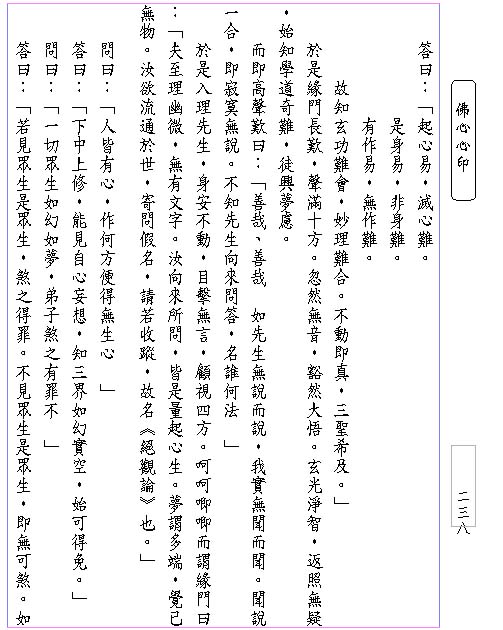 佛心心印
二三八
答曰：「起心易，滅心難。
是身易，非身難。
有作易，無作難。
故知玄功難會，妙理難合。不動即真，三聖希及。」
於是緣門長歎，聲滿十方。忽然無音，豁然大悟。玄光淨智，返照無疑
，始知學道奇難，徒興夢慮。
而即高聲歎曰：「善哉、善哉　如先生無說而說，我實無聞而聞。聞說
一合，即寂寞無說。不知先生向來問答，名誰何法　」
於是入理先生，身安不動，目擊無言，顧視四方。呵呵唧唧而謂緣門曰
：「夫至理幽微，無有文字。汝向來所問，皆是量起心生。夢謂多端，覺已
無物。汝欲流通於世，寄問假名，請若收蹤，故名《絕觀論》也。」
問曰：「人皆有心，作何方便得無生心　」
答曰：「下中上修，能見自心妄想，知三界如幻實空，始可得免。」
問曰：「一切眾生如幻如夢，弟子煞之有罪不　」
答曰：「若見眾生是眾生，煞之得罪。不見眾生是眾生，即無可煞。如